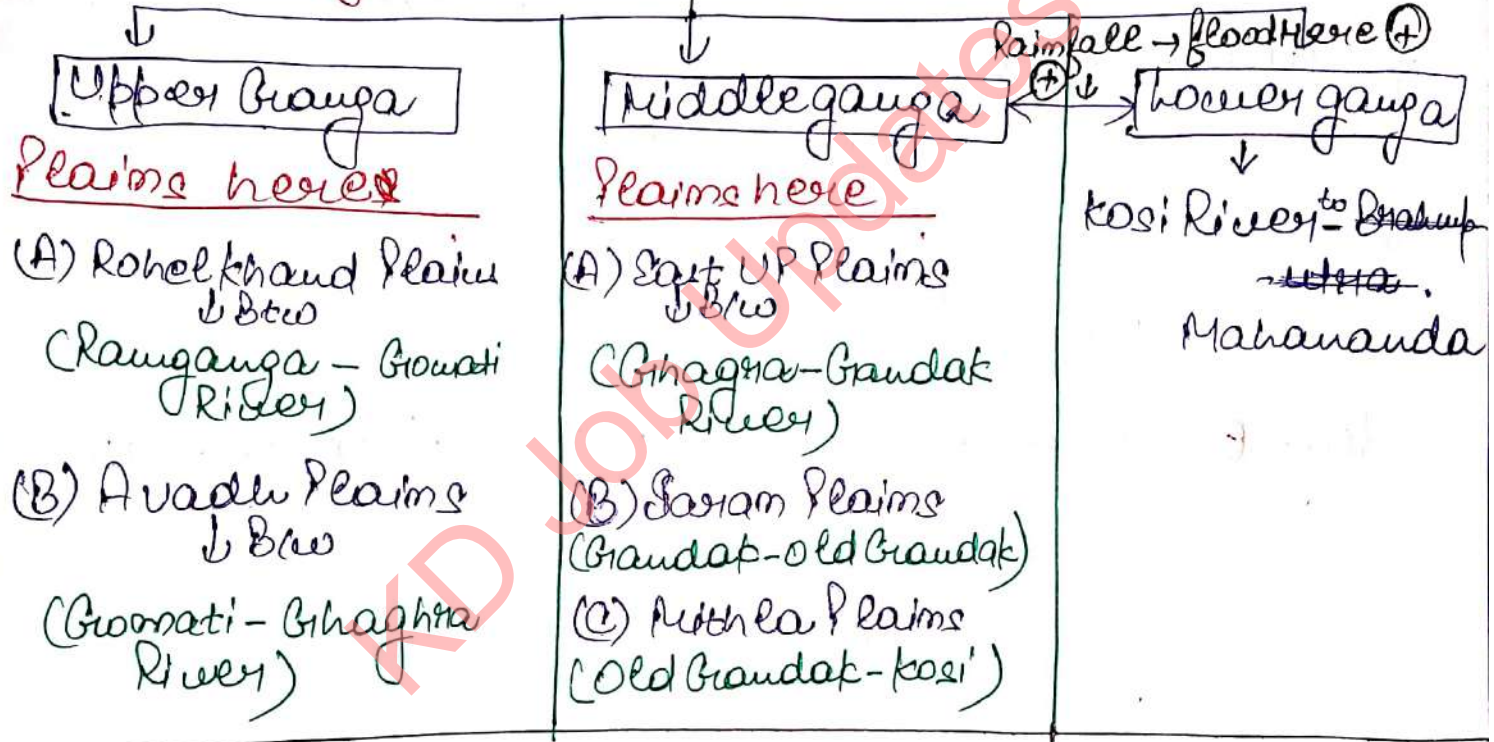 Rainfall → flood Here +
Upper Ganga
Plains here
(A) Rohelkhand Plains
↓ Btw
(Ramganga - Gomati
River)
(B) Avadh Plains
↓ B/w
(Gomati - Ghaghra
River)
Middle ganga
+ ↓
Plains here
(A) East UP Plains
↓ B/w
(Ghagra - Gandak
River)
(B) Saran Plains
(Gandak - old Gandak)
(C) Mithla Plains
(Old Gandak - kosi)
Lower ganga
↓
kosi River to -
Mahananda
KD Job Updates